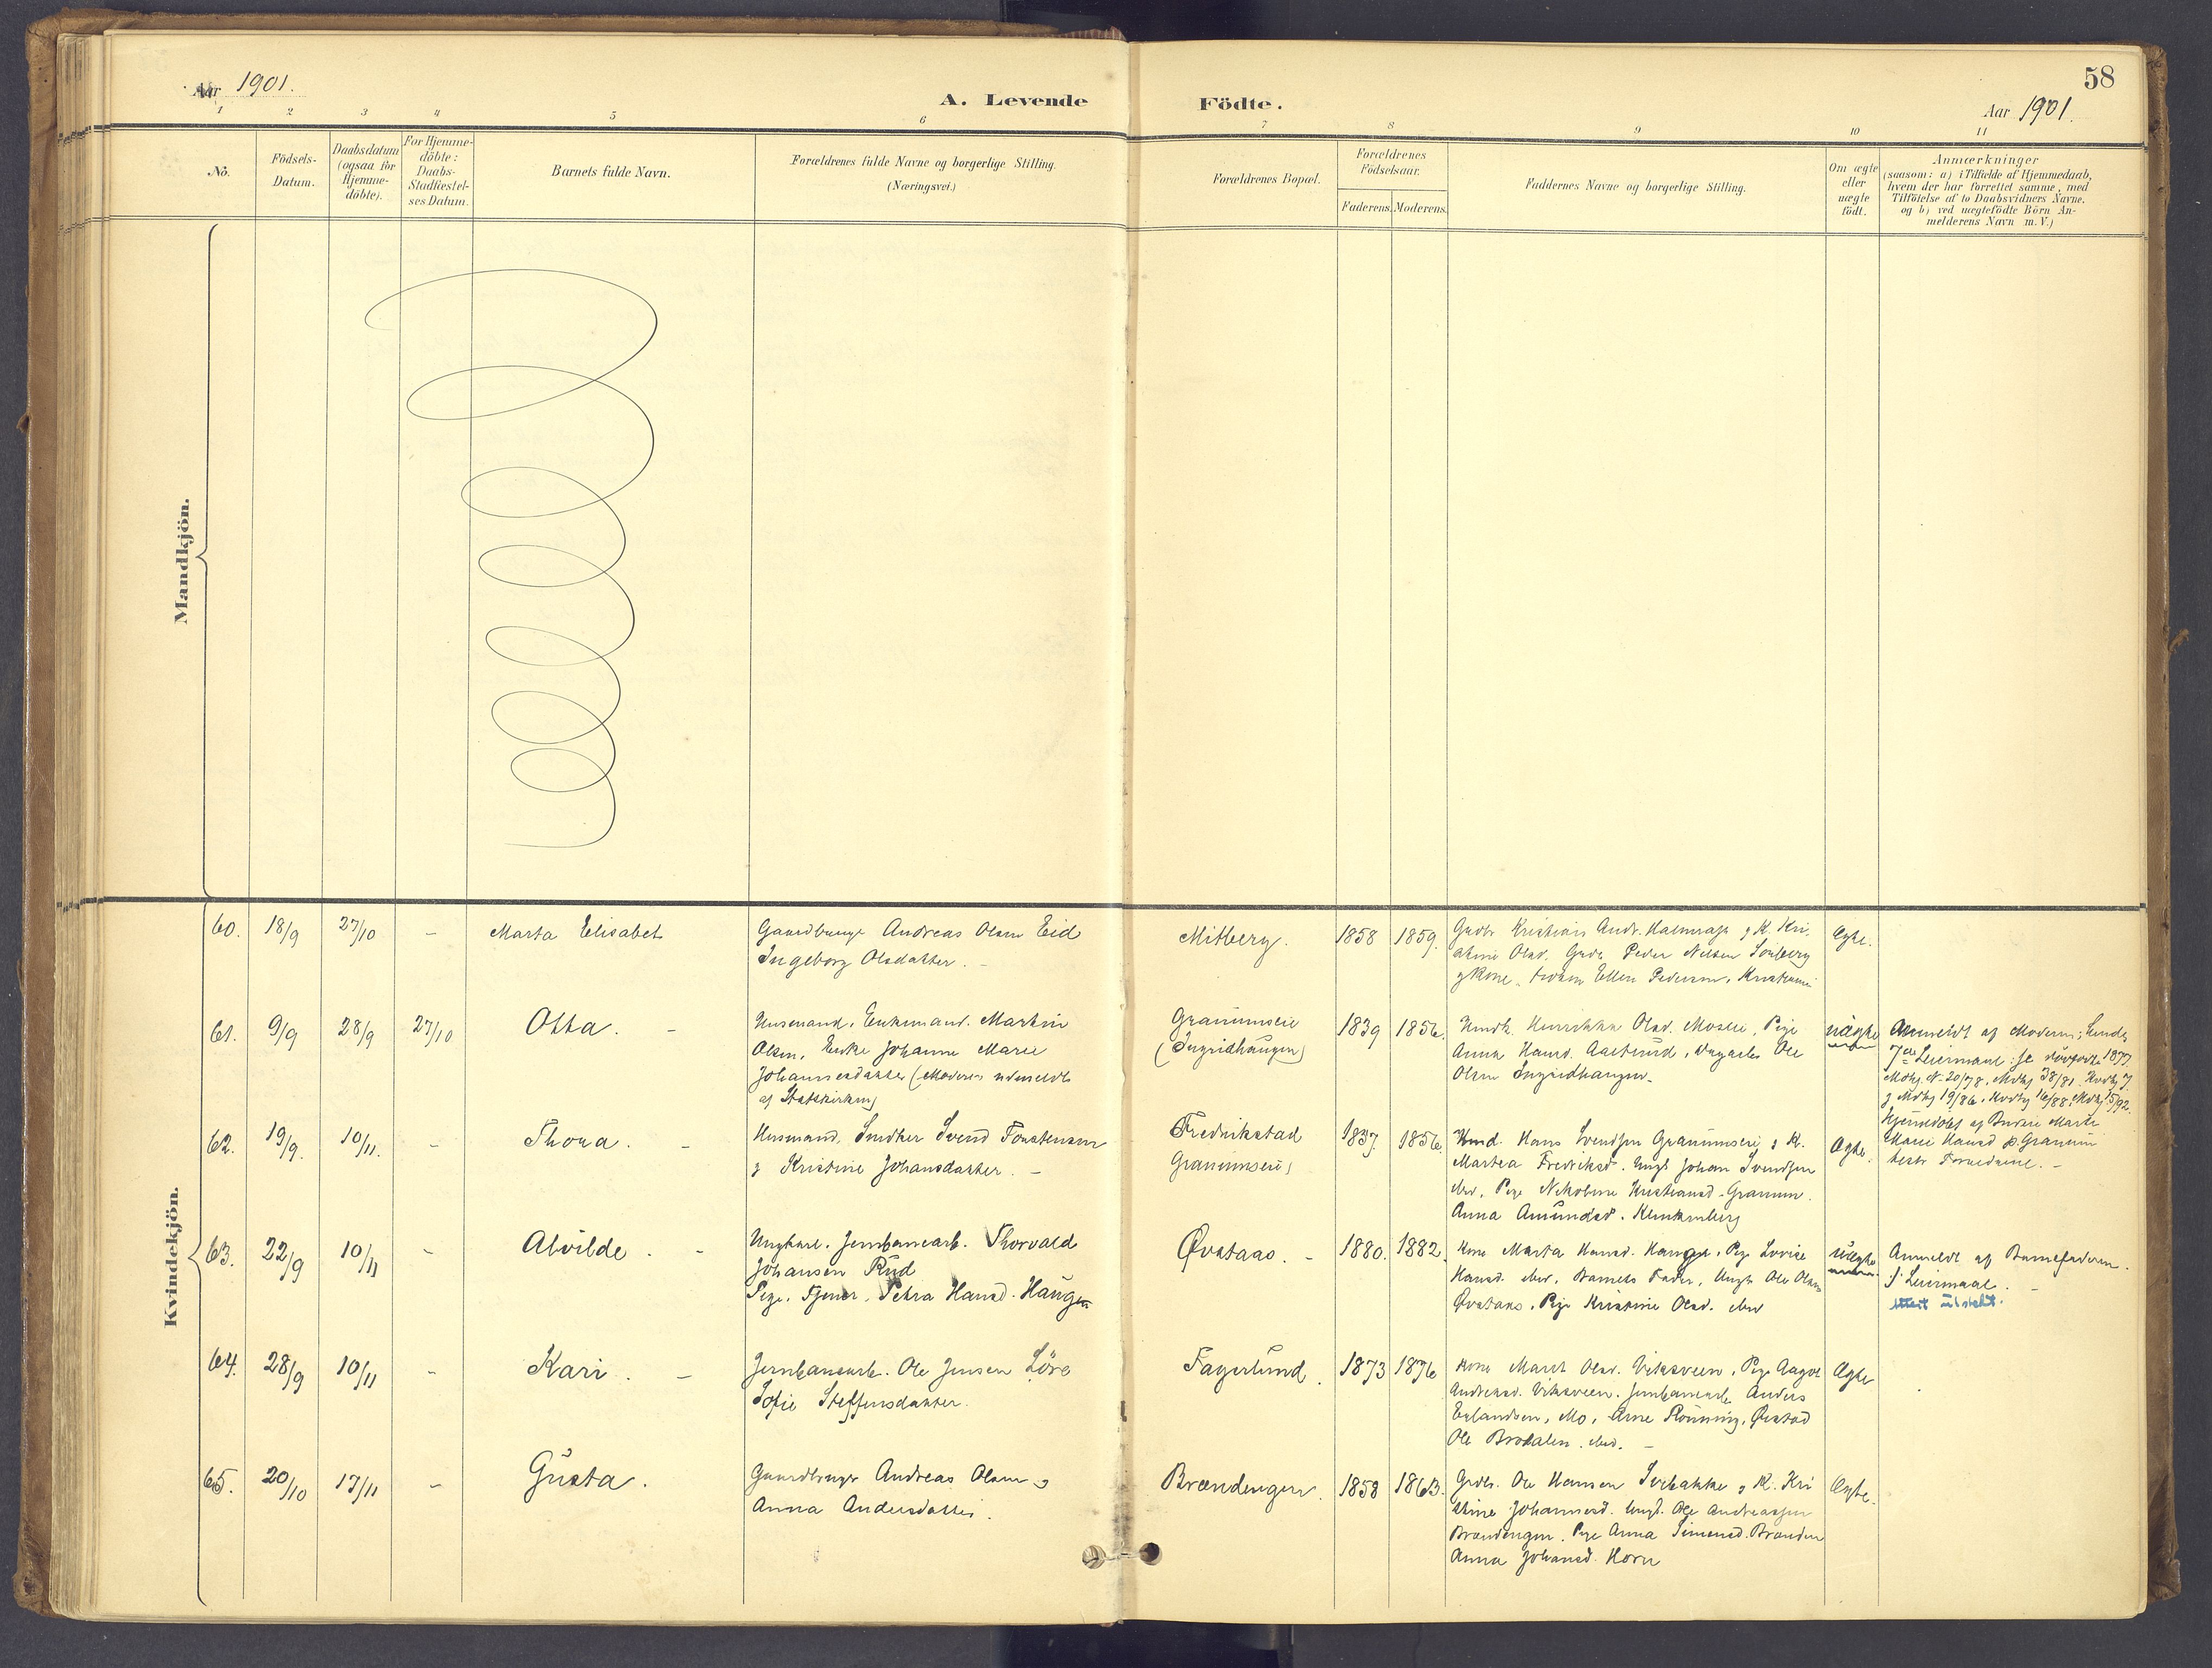 Aar 1901.
A. Levende Födte.
58
Aar 1901.
1 2 3 4 5 6 7 8 9 10 11
No.
Födsels-
Datum.
Daabsdatum
(ogsaa for
Hjemme-
döbte).
For Hjemme-
döbte:
Daabs-
Stadfæstel-
ses Datum.
Barnets fulde Navn.
Forældrenes fulde Navne og borgerlige Stilling.
(Næringsvei.)
Forældrenes Bopæl.
Forældrenes
Födselsaar.
Faderens. Moderens.
Faddernes Navne og borgerlige Stilling.
Om ægte
eller
uægte
födt.
Anmærkninger
(saasom: a) i Tilfælde af Hjemmedaab,
hvem der har forrettet samme, med
Tilföielse af to Daabsvidners Navne.
og b) ved uægtefödte Börn An-
melderens Navn m. V.)
Mandkjön.
Kvindekjön.
60. 18/9 27/10 - Marta Elisabet
Gaardbruger Andreas Olsen Eid
Ingeborg Olsdatter. -
Mitberg. 1858 1859.
Kristian Andr. & K. Kri-
stine Olsd. Peder Nilsen
& Kone, Ellen Pedersen, Kristiania
Ægte.
61. 9/9 28/9 27/10 Otta. -
Husmand, Enkemand. Martin
Olsen, Enke Johanne Marie
Johannesdatter (Moderen udmeldt
af Statskirken)
Granumseie
(Ingridhaugen)
1839 1856.
Olsd. Moseie, Pige
Anna Hansd. Aasetrud, Ungkarl Ole
Olsen Ingridhaugen.
uægte
Anmeldt af Moderen;
7de Leiermaal: 1877.
20/78, 38/81
19/86, 16/88, 15/92.
Hjemmedöbt af Marte
Marie Hansd p. Granum
Forældrene. -
62. 19/9. 10/11. - Thora. -
Husmand, Snedker Svend Torstensen
& Kristine Johansdatter. -
Fredrikstad
Granumseie)
1837. 1856.
Hmd. Hans Svendsen Granumseie & K.
Martea Fredriksd. Ungk Johan Svendsen
Pige Nikoline Kristiansd. Granum.
Anna Amundsd. Klinkenberg
Ægte.
63. 22/9 10/11 - Alvilde. -
Ungkarl. Jernbanearb. Thorvald
Johansen Rud
Pige, Petra Hansd. Haugen
Øvstaas. - 1880. 1882.
Kone Marta Hansd. Haugen, Pige Lovise
Hansd. Barnets Fader, Ungk Ole Olsen
Øvstaas, Pige Kristine Olsd.
uægte
Anmeldt af Barnefaderen.
1' Leiermaal. -
Attest udstedt.
64. 28/9 10/11 - Kari. -
Jernbanearb. Ole Jensen Löre
Sofie Steffensdatter.
Fagerlund. 1873 1876
Kone Marit Olsd. Viksveen, Pige Aagot
Andreasd. Viksveen. Jernbanearb. Anders
Erlandsen, Mo, Arne Rönning, Øvstad
Ole Brodalen.
Ægte
65. 20/10 17/11 - Gusta.
Gaardbruger Andreas Olsen &
Anna Andersdatter.
Brændengen. 1858 1863.
Grdbr. Ole Hansen & K. Kri-
stine Johannesd. Ungk. Ole Andreassen
Brændengen, Pige Anna Simensd. Brænden
Anna Johansd. Horn
Ægte.